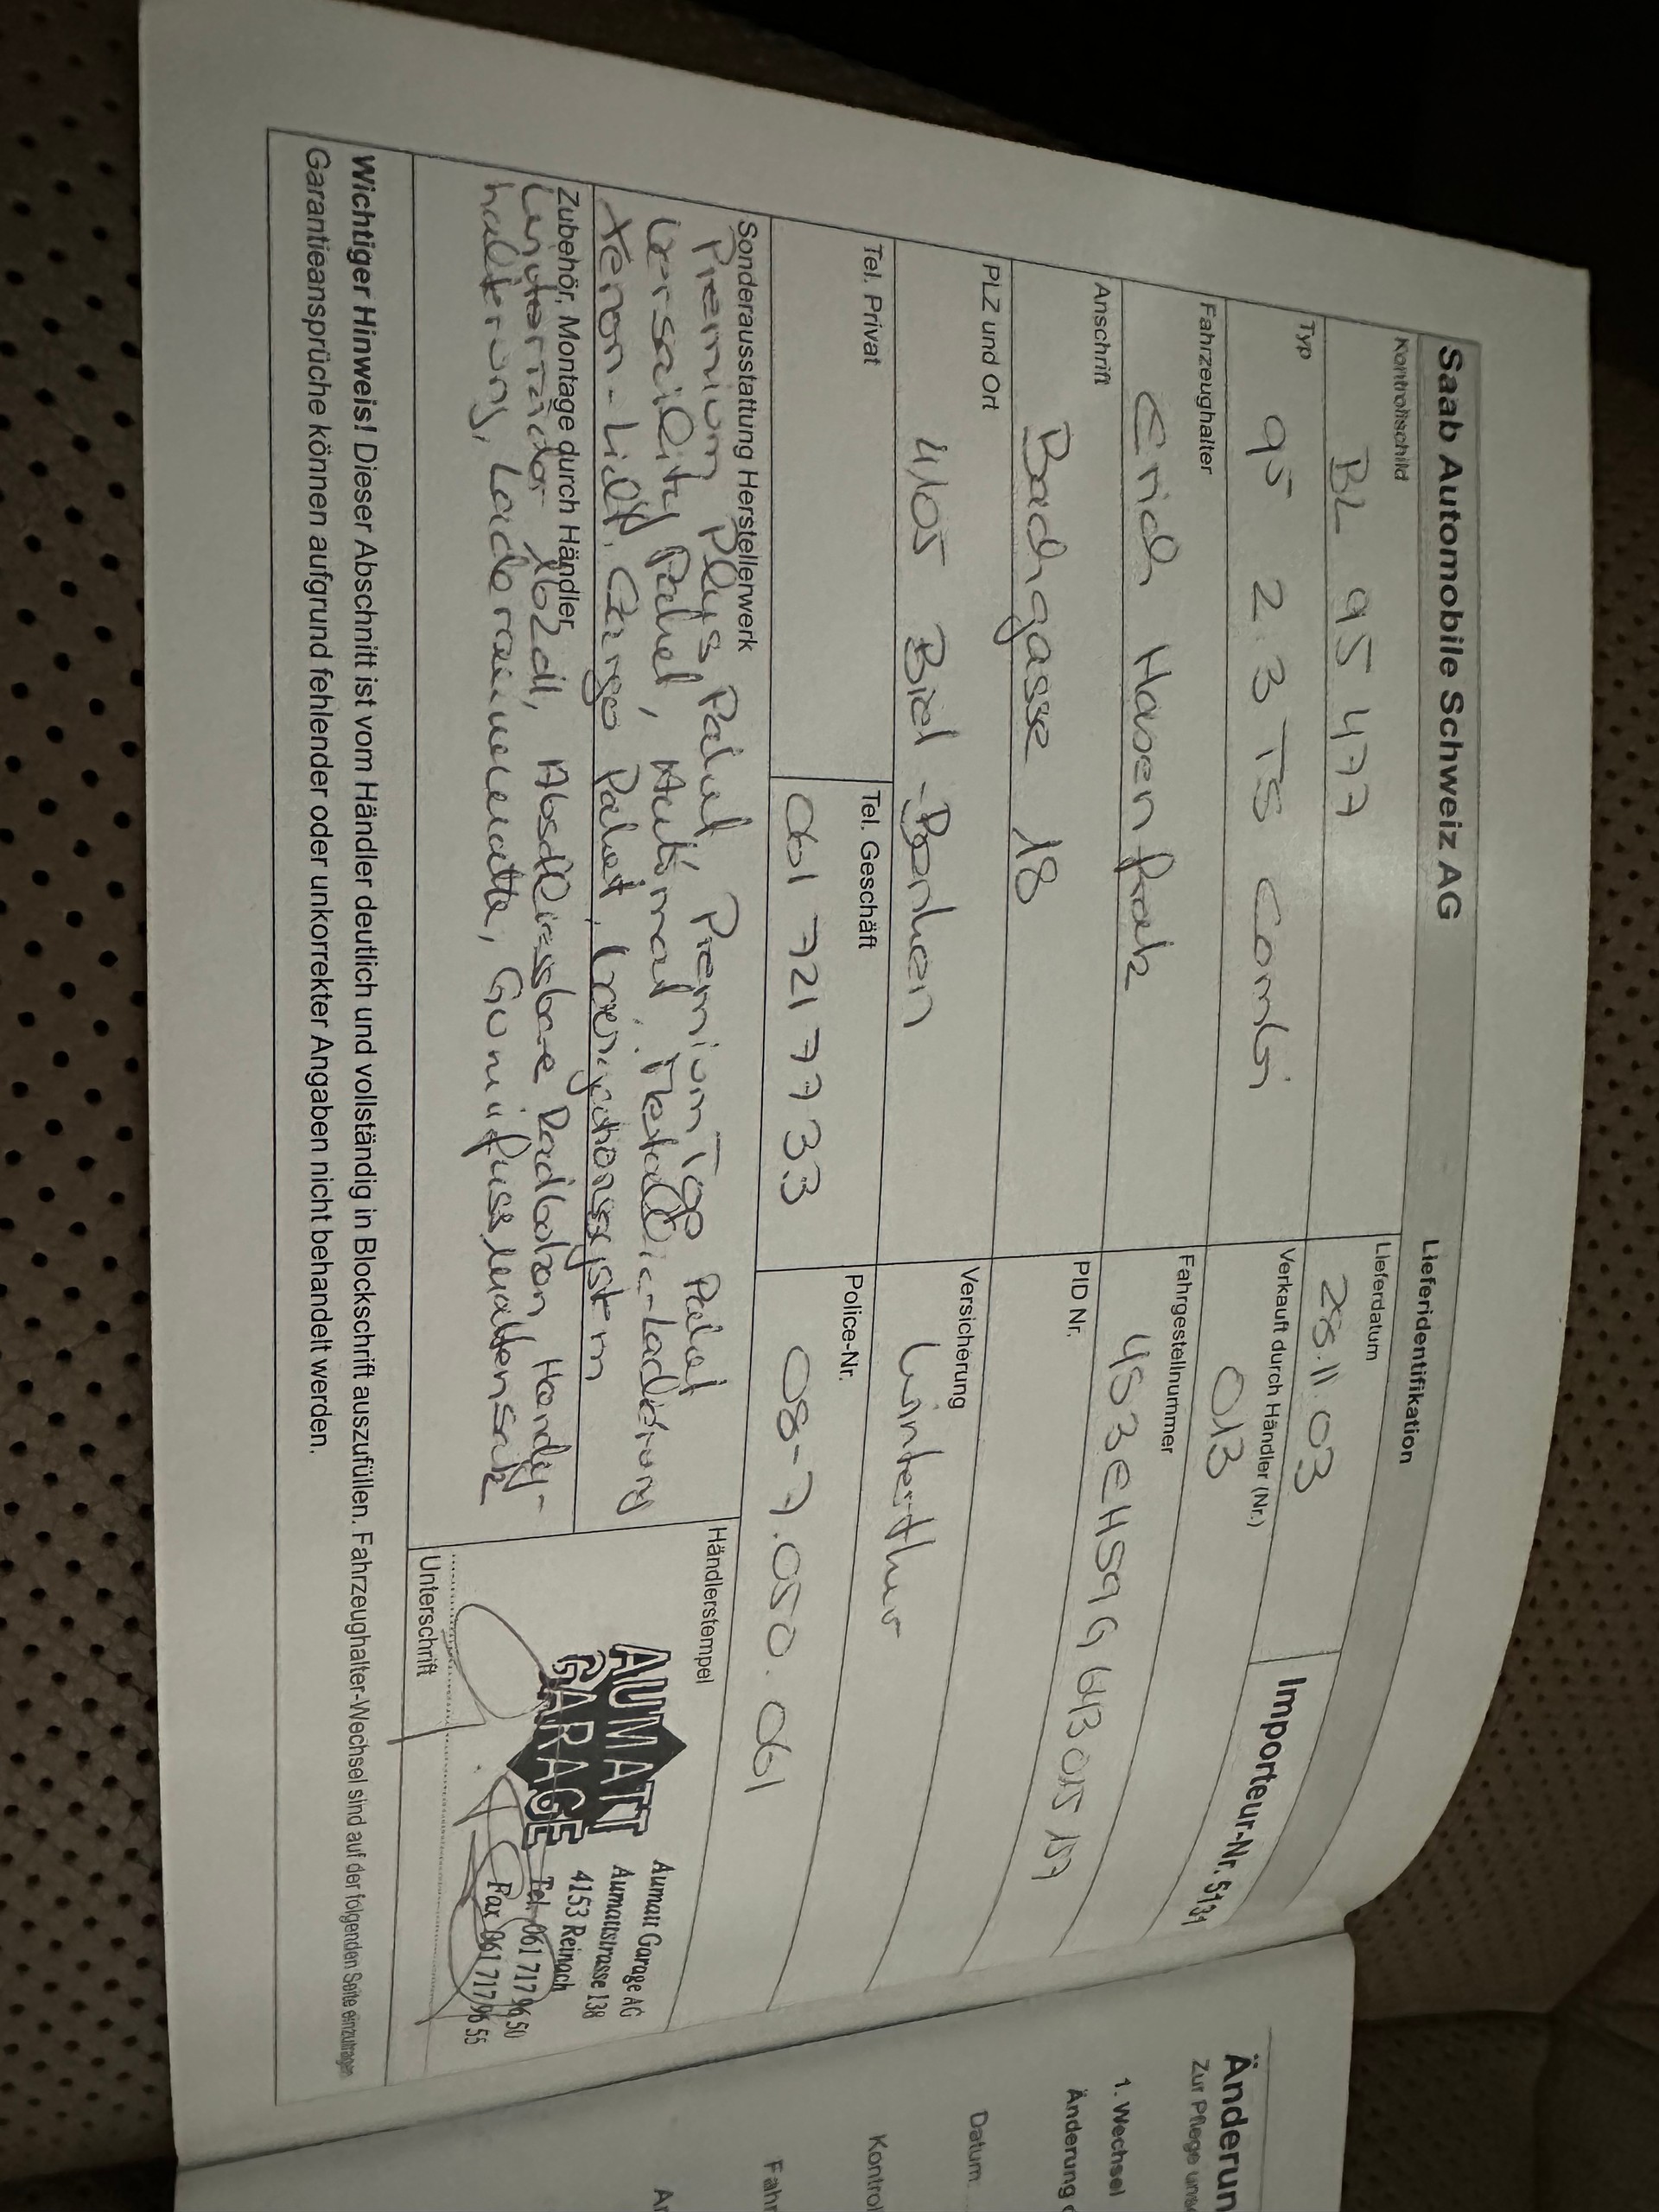 Saab Automobile Schweiz AG
Lieferidentifikation
Kontrollschild
BL 95 477
Lieferdatum
28.11.03
Importeur-Nr. 5131
Typ
95 2.3 TS Combi
Verkauft durch Händler (Nr.)
013
Fahrzeughalter
Erich Hasenfratz
Fahrgestellnummer
Anschrift
Bachgasse 18
PID Nr.
PLZ und Ort
4105 Biel-Benken
Versicherung
Winterthur
Tel. Privat
Tel. Geschäft
061 721 77 33
Police-Nr.
08-7.050.061
Sonderausstattung Herstellerwerk
Premium Plus Paket, Premium Top Paket
Versatility Paket, Automat, Metallic-Lackierung
Xenon-Licht, Cargo Paket, Navigationssystem
Zubehör, Montage durch Händler
Winterräder 16Zoll, Abschliessbare Radbolzen, Handy-
halterung, Laderaummatte, Gummifussmattensatz
Händlerstempel
AUMATT
GARAGE
Aumatt Garage AG
Aumattstrasse 138
4153 Reinach
Tel. 061 717 96 50
Fax 061 717 96 55
Unterschrift
Wichtiger Hinweis! Dieser Abschnitt ist vom Händler deutlich und vollständig in Blockschrift auszufüllen. Fahrzeughalter-Wechsel sind auf der folgenden Seite einzutragen
Garantieansprüche können aufgrund fehlender oder unkorrekter Angaben nicht behandelt werden.
Änderun
Zur Pflege unse
1. Wechsel
Änderung
Datum
Kontrol
Fahr